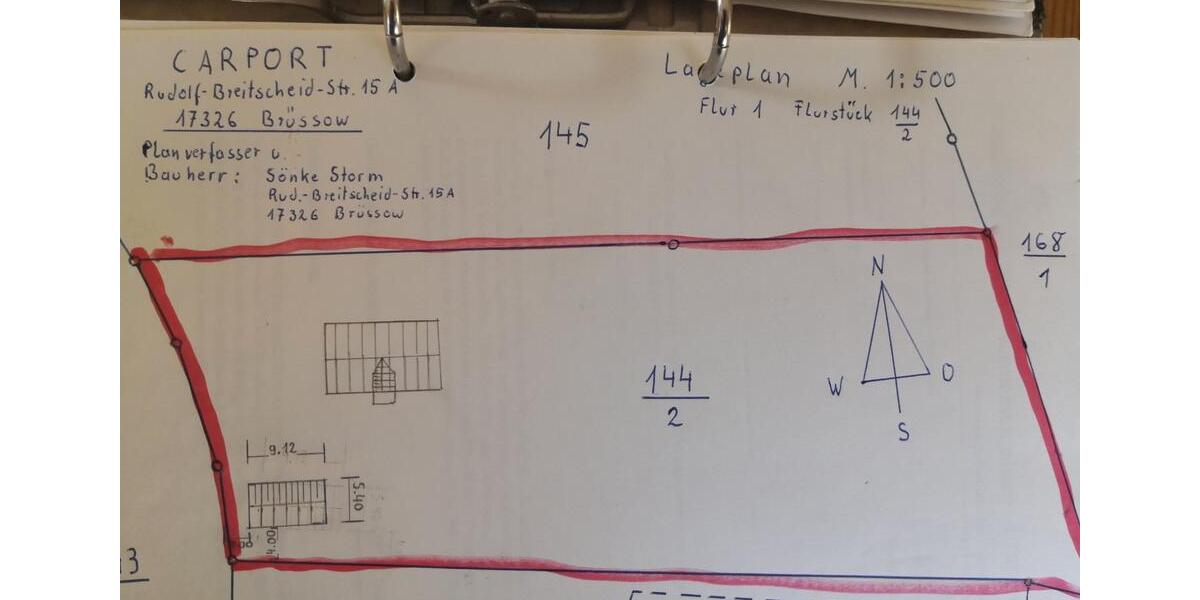 CARPORT
Rudolf-Breitscheid-Str. 15 A
17326 Brüssow
Planverfasser u.
Bauherr: Sönke Storm
Rud.-Breitscheid-Str. 15A
17326 Brüssow
Lageplan M. 1:500
Flur 1 Flurstück 144/2
145
168
1
N
W O
S
144
2
9.12
5.40
4.00
3